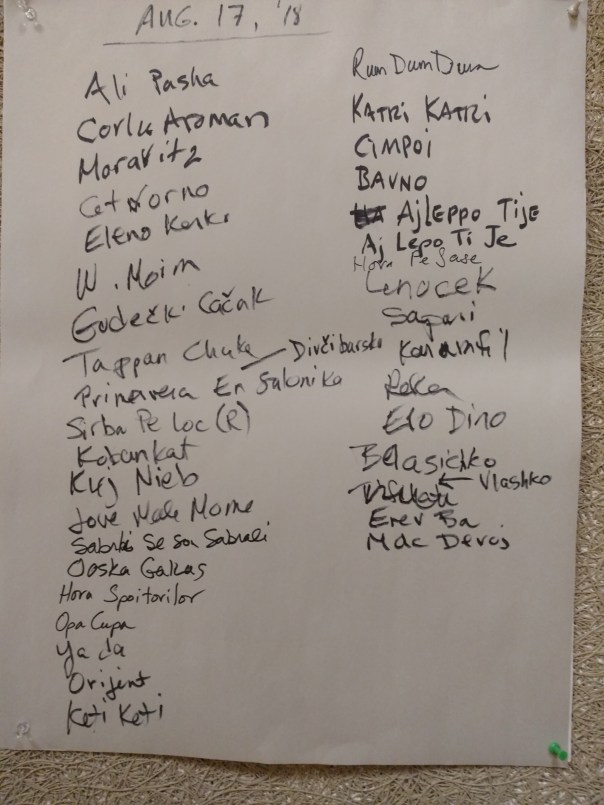 AUG. 17, '18
Ali Pasha
Corlu Aroman
Moravitz
Cetvorno
Eleno
W. Moim
Gudečki Čačak
Tappan Chuka Divčibarsko
Primavera En Salonika
Sirba Pe Loc (R)
Kobankat
Kuj Nieb
Jove Male Mome
Se Sa Sabrali
Ooska Gakas
Hora Spoitorilor
Opa Cupa
Ya da
Orijent
Keti Keti
Rum Dum Dum
KATRi KATRi
CiMPOi
BAVNO
AjLEPPO Tije
Aj Lepo Ti Je
Hora Pe Sase
Cnocek
Sagani
Karamfil
Reka
Elo Dino
Belasichko
Vlashko
Erev Ba